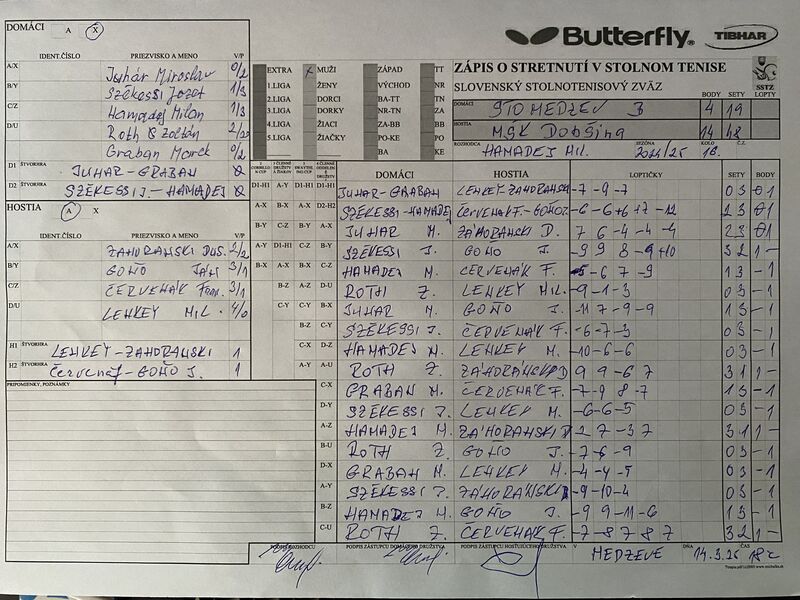 DOMÁCI A X
IDENT.ČÍSLO PRIEZVISKO A MENO V/P
A/X Juhár Miroslav 0/2
B/Y Székessi Jozef 1/3
C/Z Hamadej Milan 1/3
D/U Roth Zoltán 2/2
Graban Marek 0/2
D1 ŠTVORHRA JUHAR-GRABAN 0
D2 ŠTVORHRA SZÉKESSI J.-HAMADEJ 0
HOSTIA A X
IDENT.ČÍSLO PRIEZVISKO A MENO V/P
A/X ZAHORANSKI DUŠ. 2/2
B/Y GOŇO JÁN 3/1
C/Z ČERVENÁK Fran. 3/1
D/U LEHKEY MIL. 4/0
H1 ŠTVORHRA LEHKEY-ZAHORANSKI 1
H2 ŠTVORHRA Červenák-GOŇO J. 1
PRIPOMIENKY, POZNÁMKY
EXTRA X MUŽI ZÁPAD TT
1.LIGA ŽENY VÝCHOD NR
2.LIGA DORCI BA-TT TN
3.LIGA DORKY NR-TN ZA
4.LIGA ŽIACI ZA-BB BB
5.LIGA ŽIAČKY PO-KE PO
BA KE
Butterfly TIBHAR
ZÁPIS O STRETNUTÍ V STOLNOM TENISE
SLOVENSKÝ STOLNOTENISOVÝ ZVÄZ
SSTZ
BODY SETY LOPTY
DOMÁCI STO MEDZEV B 4 19
HOSTIA MSK DOBŠINÁ 14 48
ROZHODCA HAMADEJ MIL. SEZÓNA 2024/25 KOLO 18 Č.Z.
DOMÁCI HOSTIA LOPTIČKY SETY BODY
D1-H1 A-Y D1-H1 D1-H1 JUHAR-GRABAN LEHKEY-ZAHORANSKI -7 -9 -7 0 3 0 1
A-X B-X A-X D2-H2 SZÉKESSI-HAMADEJ ČERVENÁK F.-GOŇO J. -6 -6 +6 +7 -12 2 3 0 1
B-Y C-Z B-Y A-X JUHAR M. ZÁHORANSKI D. 7 6 -4 -4 -9 2 3 0 1
A-Y D1-H1 C-Z B-Y SZÉKESSI J. GOŇO J. -9 9 8 -9 +10 3 2 1 -
B-X A-X A-X C-Z HAMADEJ M. ČERVENÁK F. -6 7 -9 1 3 - 1
B-Z A-Z D-U ROTH Z. LEHKEY MIL. -9 -1 -3 0 3 - 1
C-Y C-Y B-X JUHAR M. GOŇO J. -11 7 -9 -9 1 3 - 1
B-Z C-Y SZÉKESSI J. ČERVENÁK F. -6 -7 -3 0 3 - 1
C-X D-Z HAMADEJ M. LEHKEY M. -10 -6 -6 0 3 - 1
A-Y A-U ROTH Z. ZÁHORANSKI D 9 9 -6 7 3 1 1 -
C-X GRABAN M. ČERVENÁK F. -7 -9 8 -7 1 3 - 1
D-Y SZÉKESSI J. LEHKEY M. -6 -6 -5 0 3 - 1
A-Z HAMADEJ M. ZÁHORANSKI D 2 7 -3 7 3 1 1 -
B-U ROTH Z. GOŇO J. -7 -6 -9 0 3 - 1
D-X GRABAN M. LEHKEY M. -4 -4 -5 0 3 - 1
A-Y SZÉKESSI J. ZÁHORANSKI D -9 -10 -4 0 3 - 1
B-Z HAMADEJ M. GOŇO J. -9 9 -11 -6 1 3 -
C-U ROTH Z. ČERVENÁK F. -7 -8 7 8 7 3 2 1 -
PODPIS ROZHODCU PODPIS ZÁSTUPCU DOMÁCEHO DRUŽSTVA PODPIS ZÁSTUPCU HOSŤUJÚCEHO DRUŽSTVA V MEDZEVE DŇA 14.3.25 ČAS 18